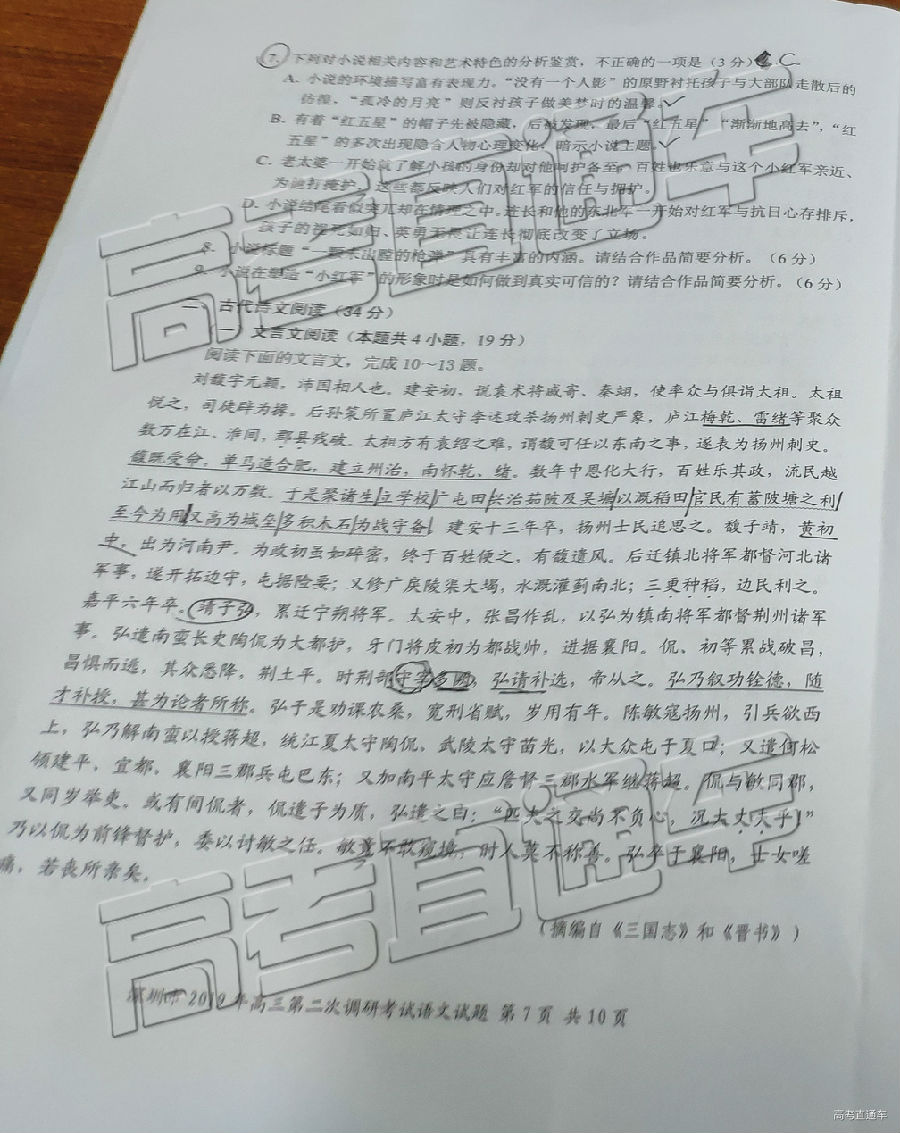 7. 下列对小说相关内容和艺术特色的分析鉴赏，不正确的一项是（3 分） C
A. 小说的环境描写富有表现力。“没有一个人影”的原野衬托孩子与大部队走散后的
彷徨、“孤冷的月亮”则反衬孩子做美梦时的温馨。
B. 有着“红五星”的帽子先被隐藏，后被发现，最后“红五星”“渐渐地高去”，“红
五星”的多次出现隐含人物心理变化，暗示小说主题。
C. 老太婆一开始就了解小孩的身份却对他呵护备至，百姓也乐意与这个小红军亲近、
为他打掩护，这些都反映人们对红军的信任与拥护。
D. 小说结尾看似突兀却在情理之中。连长和他的东北军一开始对红军与抗日心存排斥，
孩子的视死如归、英勇无畏让连长彻底改变了立场。
8. 小说标题“一颗未出膛的枪弹”具有丰富的内涵。请结合作品简要分析。（6 分）
9. 小说在塑造“小红军”的形象时是如何做到真实可信的？请结合作品简要分析。（6 分）
二、古代诗文阅读（34 分）
（一）文言文阅读（本题共 4 小题，19 分）
阅读下面的文言文，完成 10～13 题。
刘馥字元颖，沛国相人也。建安初，说袁术将戚寄、秦翊，使率众与俱诣太祖。太祖
悦之，司徒辟为掾。后孙策所置庐江太守李述攻杀扬州刺史严象，庐江梅乾、雷绪等聚众
数万在江、淮间，郡县残破。太祖方有袁绍之难，谓馥可任以东南之事，遂表为扬州刺史。
馥既受命，单马造合肥，建立州治，南怀乾、绪。数年中恩化大行，百姓乐其政，流民越
江山而归者以万数。于是聚诸生立学校广屯田兴治茹陂及吴塘以溉稻田官民有蓄陂塘之利
至今为用又高为城垒多积木石为战守备。建安十三年卒，扬州士民追思之。馥子靖，黄初
中，出为河南尹。为政初虽如碎密，终于百姓便之，有馥遗风。后迁镇北将军都督河北诸
军事，遂开拓边守，屯据险要；又修广戾陵渠大堨，水溉灌蓟南北；三更种稻，边民利之。
嘉平六年卒。靖子弘，累迁宁朔将军。太安中，张昌作乱，以弘为镇南将军都督荆州诸军
事。弘遣南蛮长史陶侃为大都护，牙门将皮初为都战帅，进据襄阳。侃、初等累战破昌，
昌惧而逃，其众悉降，荆土平。时荆部守宰多阙，弘请补选，帝从之。弘乃叙功铨德，随
才补授，甚为论者所称。弘于是劝课农桑，宽刑省赋，岁用有年。陈敏寇扬州，引兵欲西
上，弘乃解南蛮以授蒋超，统江夏太守陶侃、武陵太守苗光，以大众屯于夏口；又遣何松
领建平、宜都、襄阳三郡兵屯巴东；又加南平太守应詹督三郡水军继蒋超。侃与敏同郡，
又同岁举吏，或有间侃者，侃遣子为质，弘遣之曰：“匹夫之交尚不负心，况大丈夫乎！”
乃以侃为前锋督护，委以讨敏之任。敏竟不敢窥境，时人莫不称善。弘卒于襄阳，士女嗟
痛，若丧所亲矣。
（摘编自《三国志》和《晋书》）
深圳市 2019 年高三第二次调研考试语文试题 第 7 页 共 10 页
高考直通车
高考直通车
高考直通车